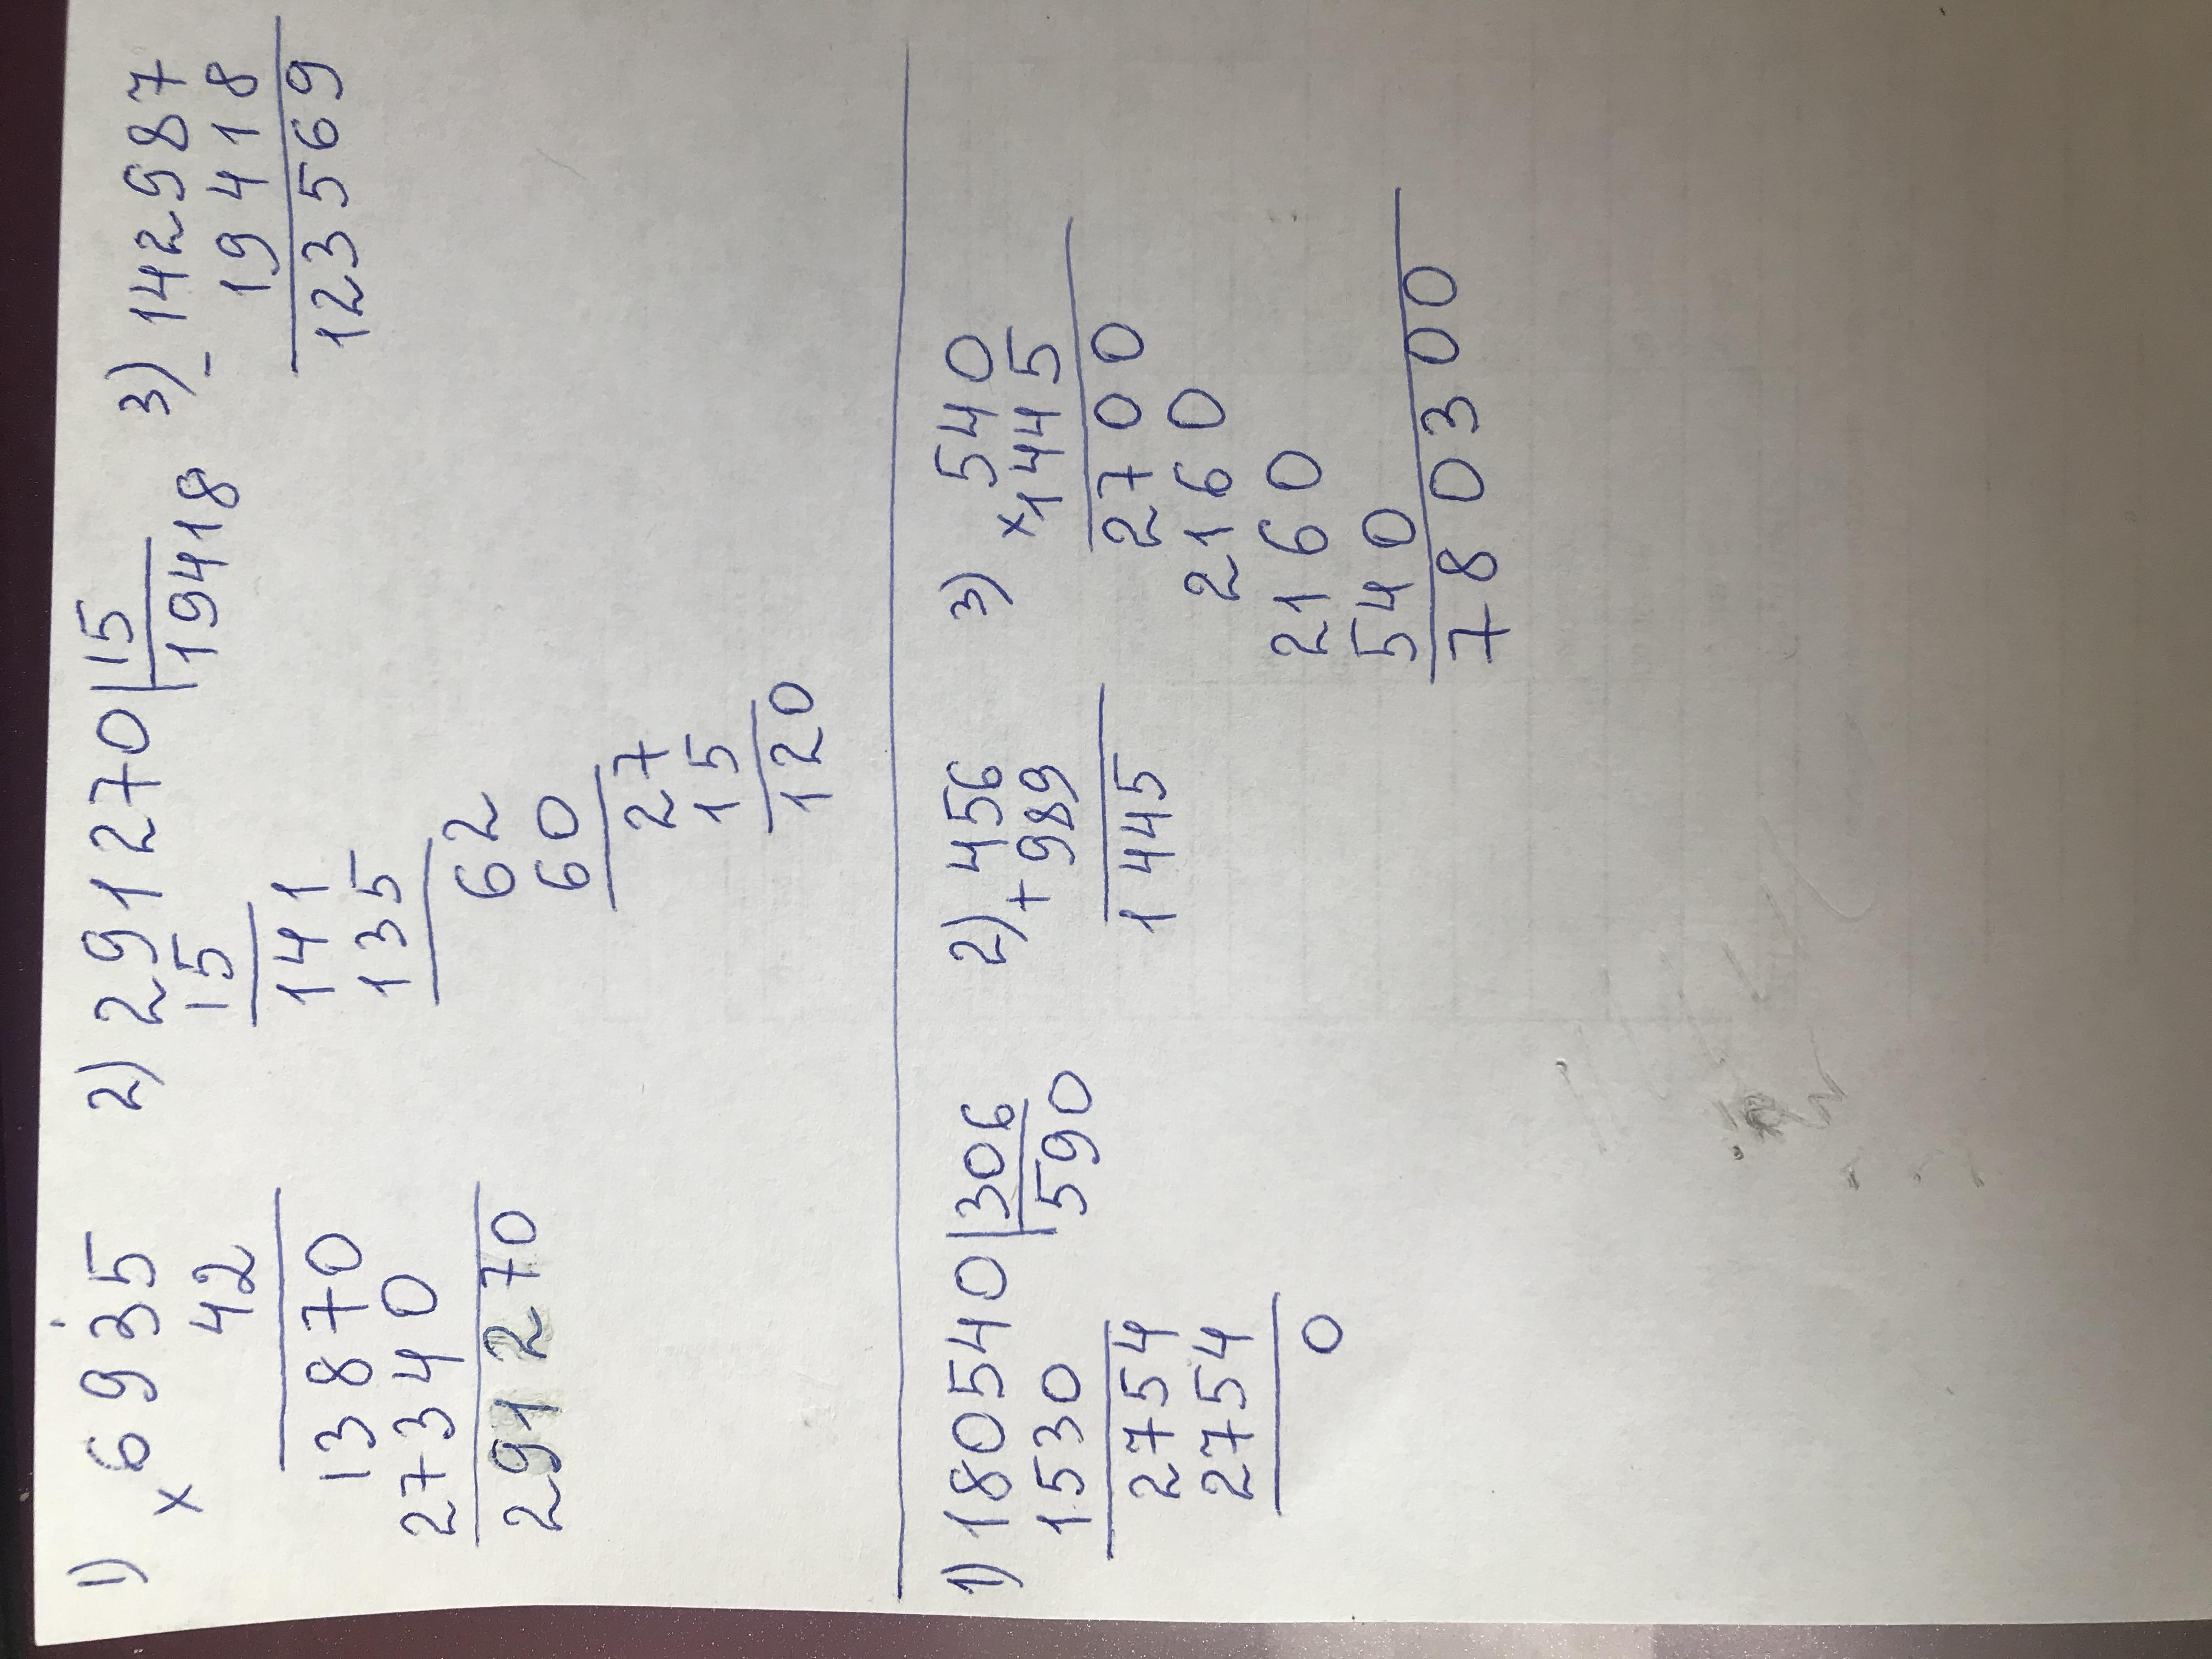 1) × 6935
42
13870
27340
291270
2) 291270 | 15
15 19418
141
135
62
60
27
15
120
3) - 142987
19418
123569
1) 180540 | 306
1530 590
2754
2754
0
2) 456
+ 989
1445
3) 540
×1445
2700
2160
2160
540
780300